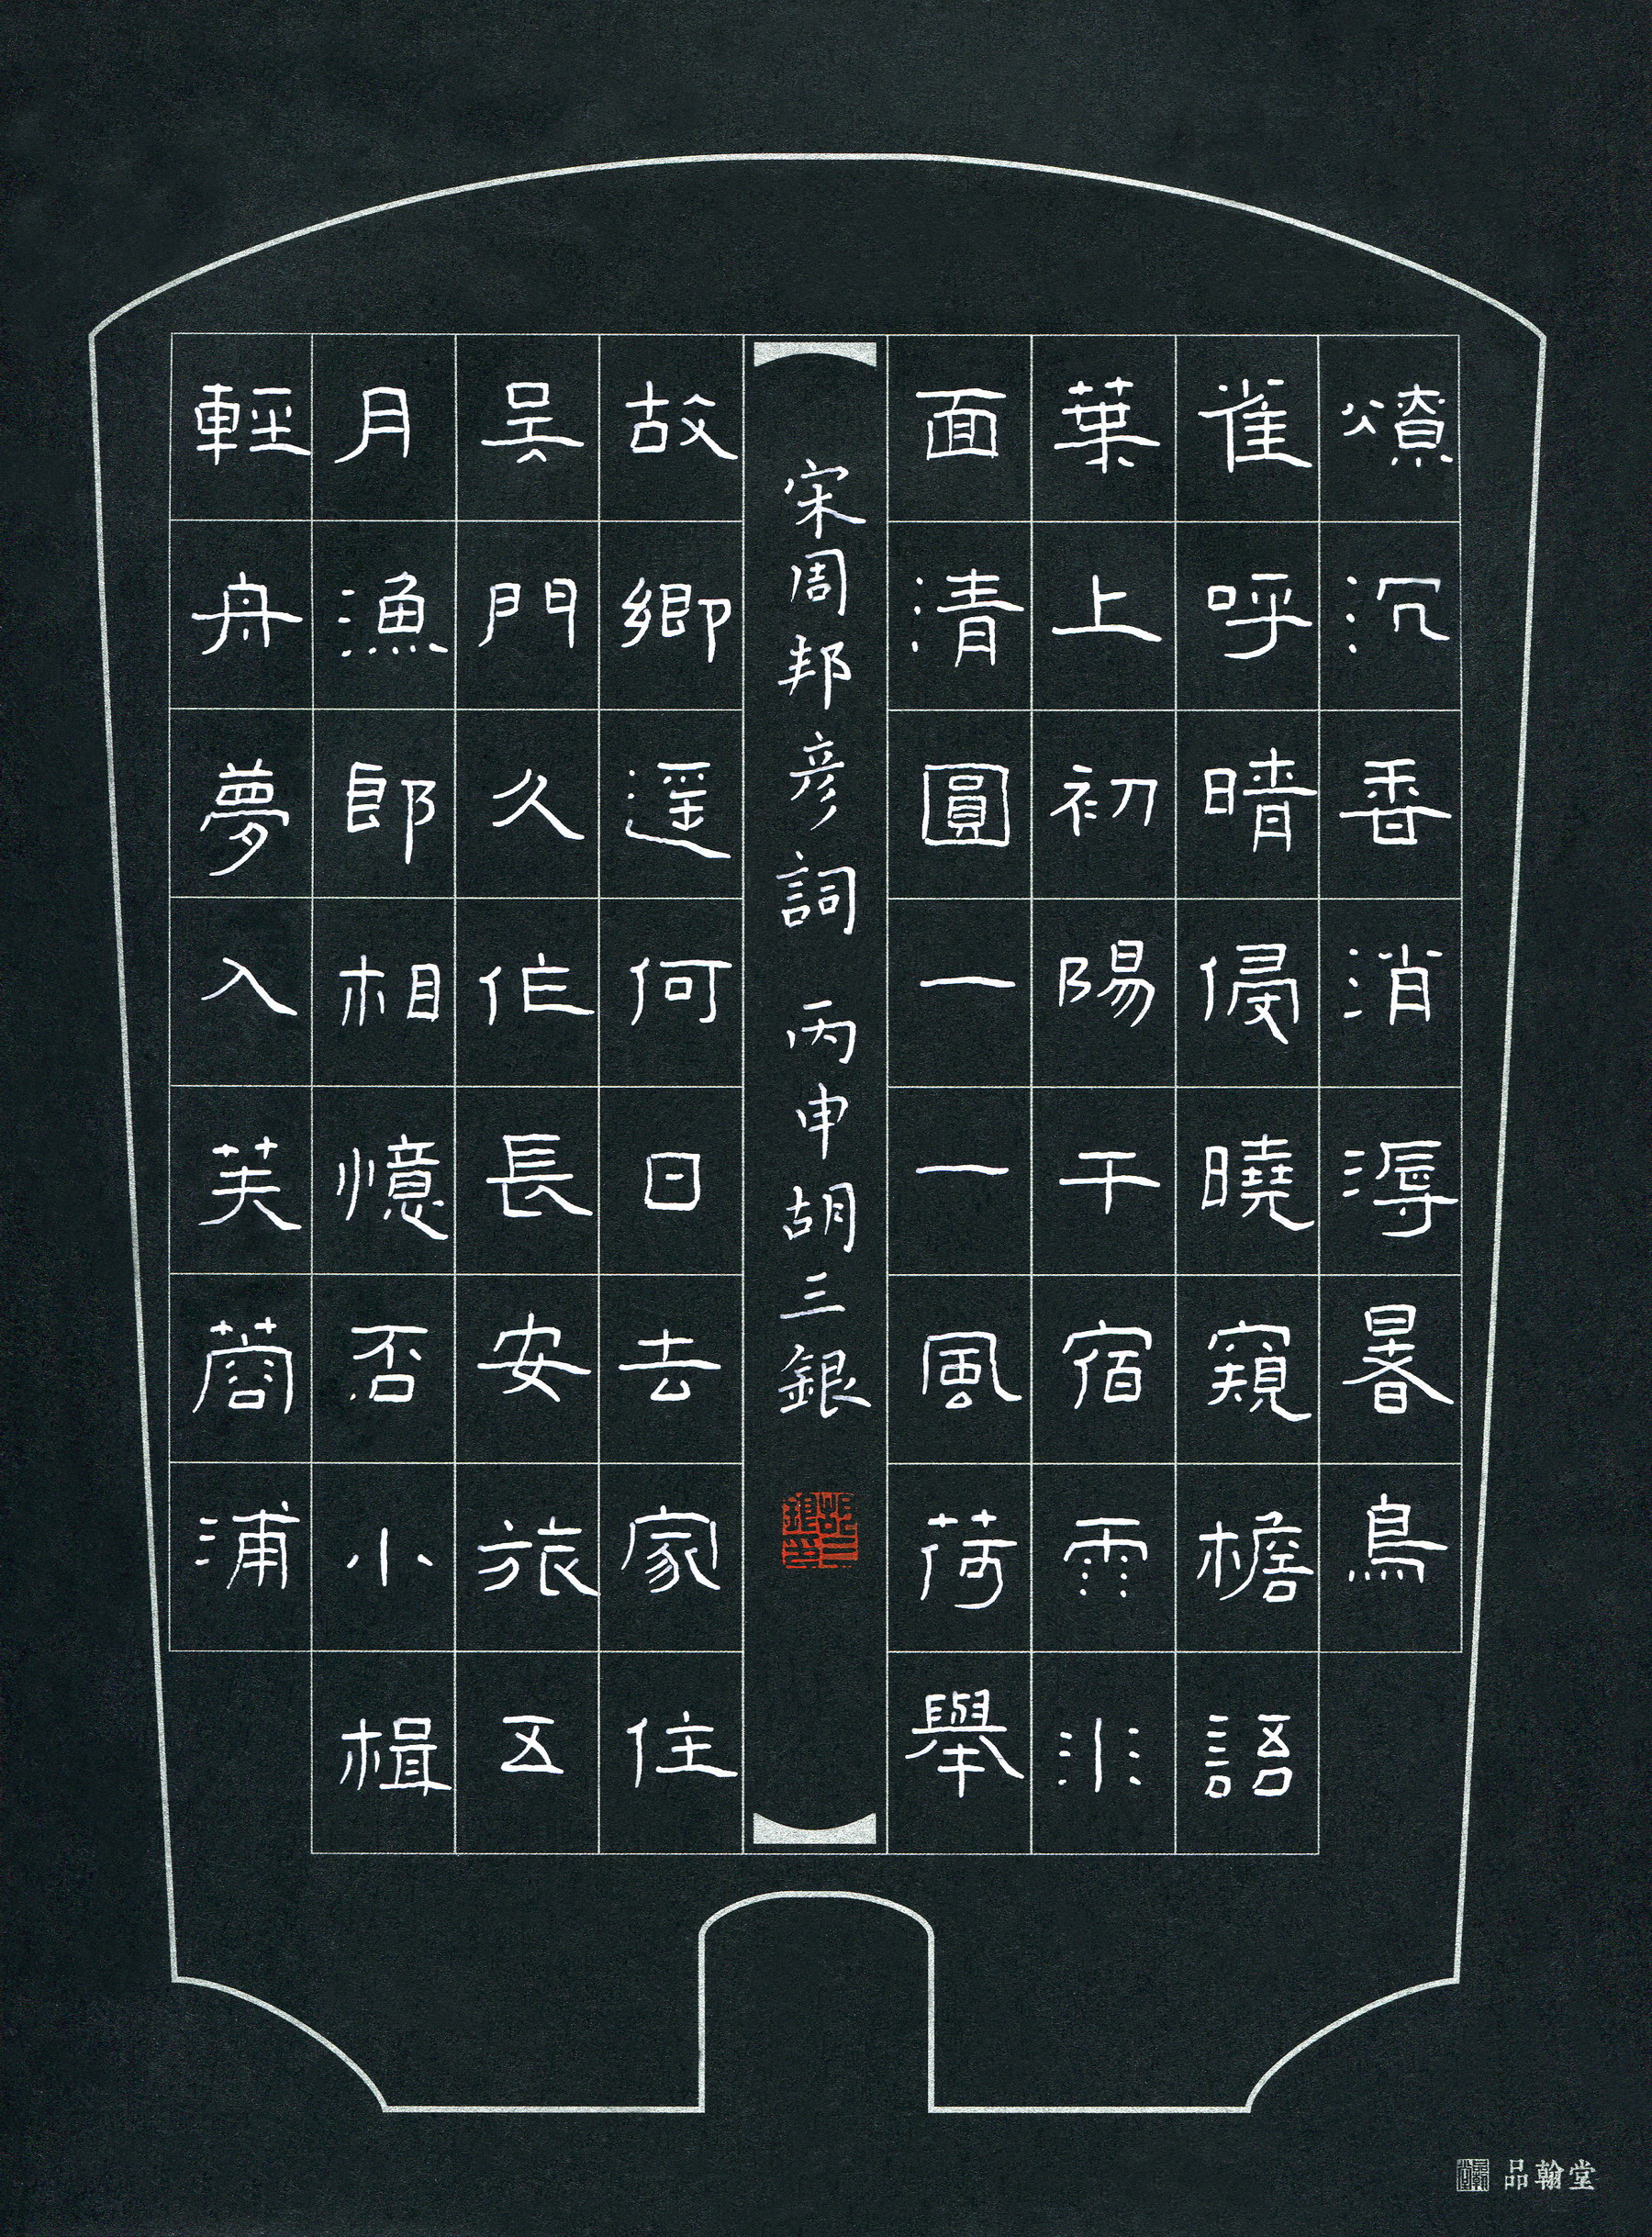 燎沉香消溽暑鳥
雀呼晴侵曉窺檐語
葉上初陽干宿雨水
面清圓一一風荷舉
宋周邦彥詞 丙申胡三銀
胡三銀印
故鄉遥何日去家住
吴門久作長安旅五
月漁郎相憶否小楫
輕舟夢入芙蓉浦
品翰堂